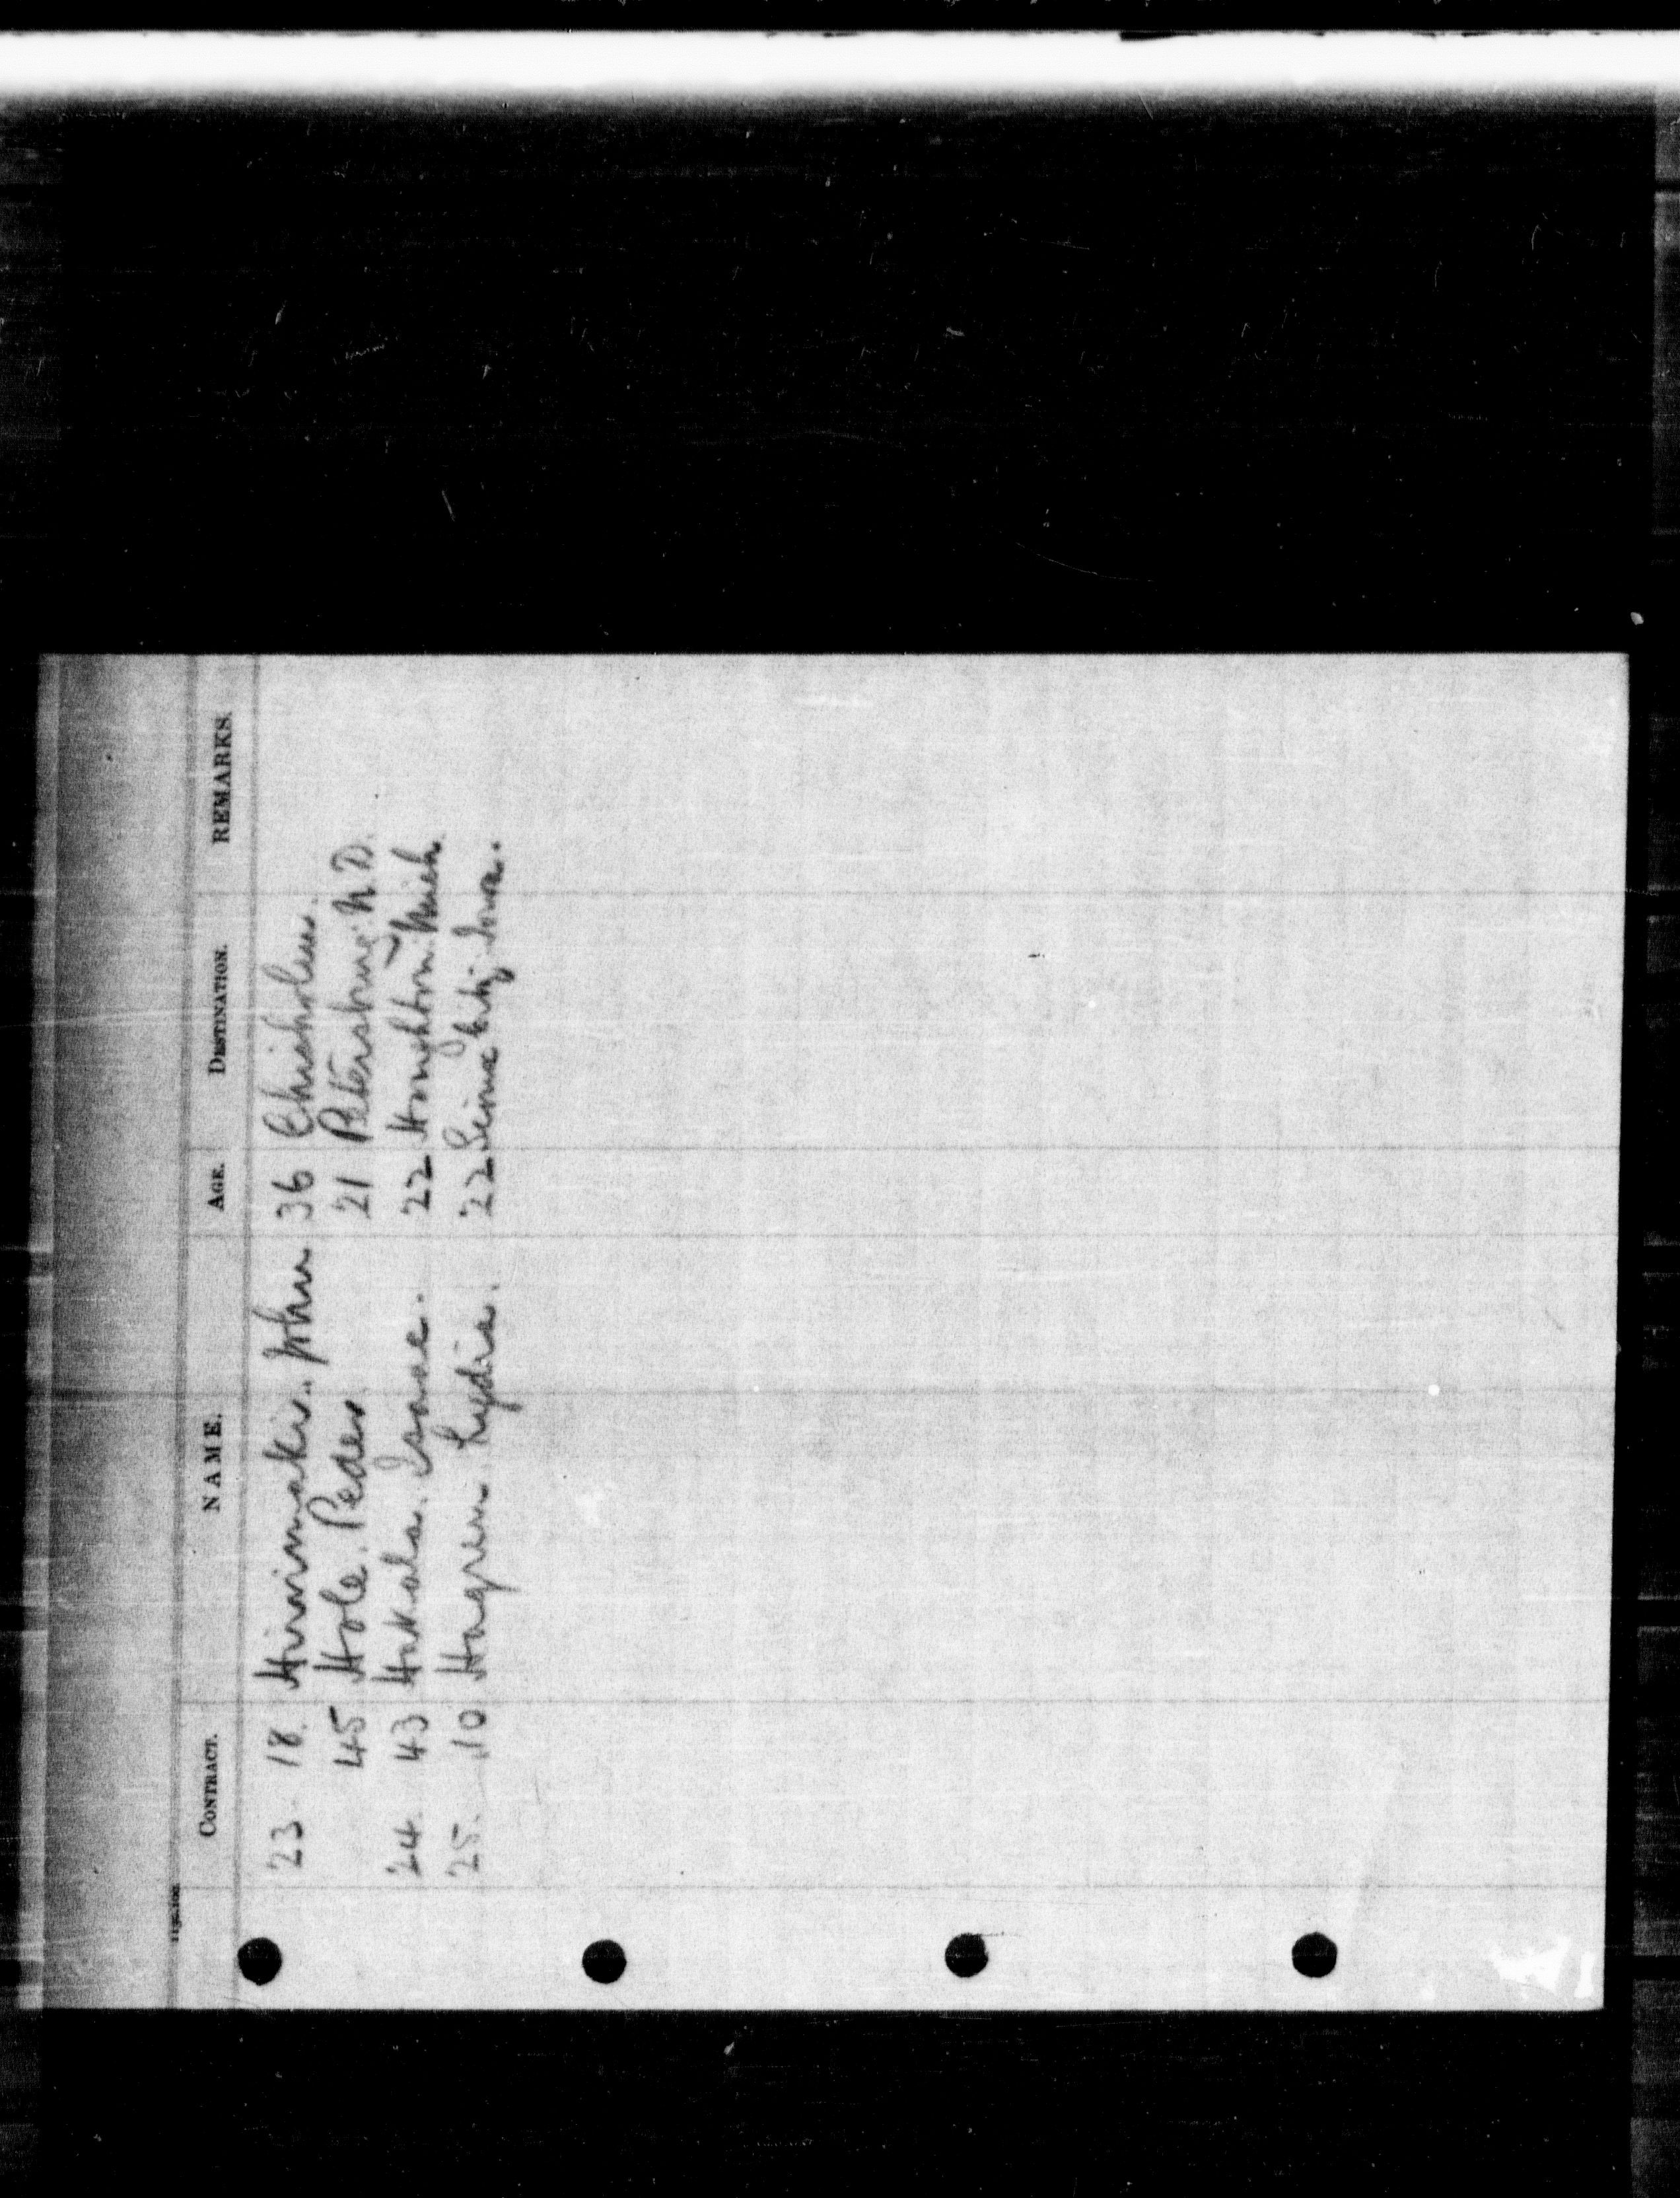 CONTRACT. NAME. AGE. DESTINATION. REMARKS.
23 18. Hirvimaki. John 36 Chisholm.
45 Hole. Peder. 21 Petersburg. N.D.
24. 43 Hakala. Isaac. 22 Houghton. Mich.
25. 10 Hagren Lydia. 22 City. Iowa.